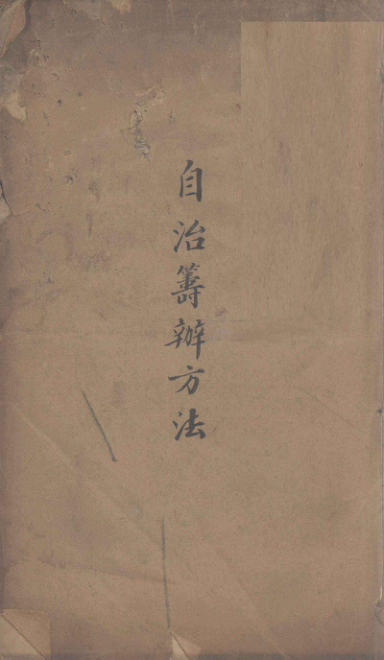 自治籌辦方法